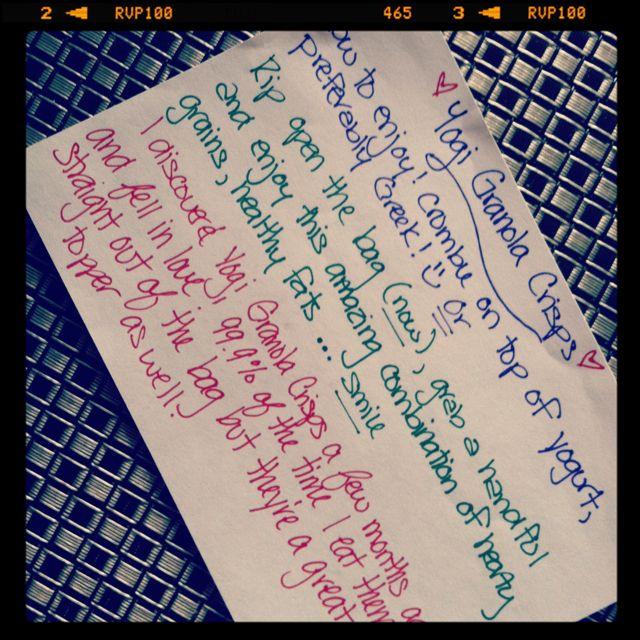 2 RVP100 465 3 RVP100
♥ Yogi Granola Crisps ♥
ow to enjoy! Crombie on top of yogurt,
preferably Greek! Or
Rip open the bag (now), grab a handful
and enjoy this amazing combination of hearty
grains, healthy fats... smile
I discovered Yogi Granola Crisps a few months a
and fell in love; 99.9% of the time I eat them
straight out of the bag but they're a great
topper as well!